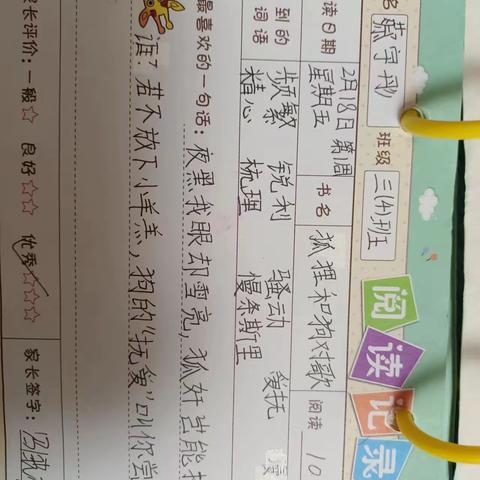 阅读记录
名 蔡宇彤 班级 三(4)班
读日期 2月18日 第1周 星期五 书名 狐狸和狗对歌 阅读 10
到的词语 频繁 锐利 骚动
精心 梳理 慢条斯里 爱抚
最喜欢的一句话：夜黑我眼却雪亮，狐奸岂能
谁？若不放下小羊羔，狗的“抚爱”叫你尝
长评价：一般☆ 良好☆☆ 优秀☆☆☆ 家长签字：